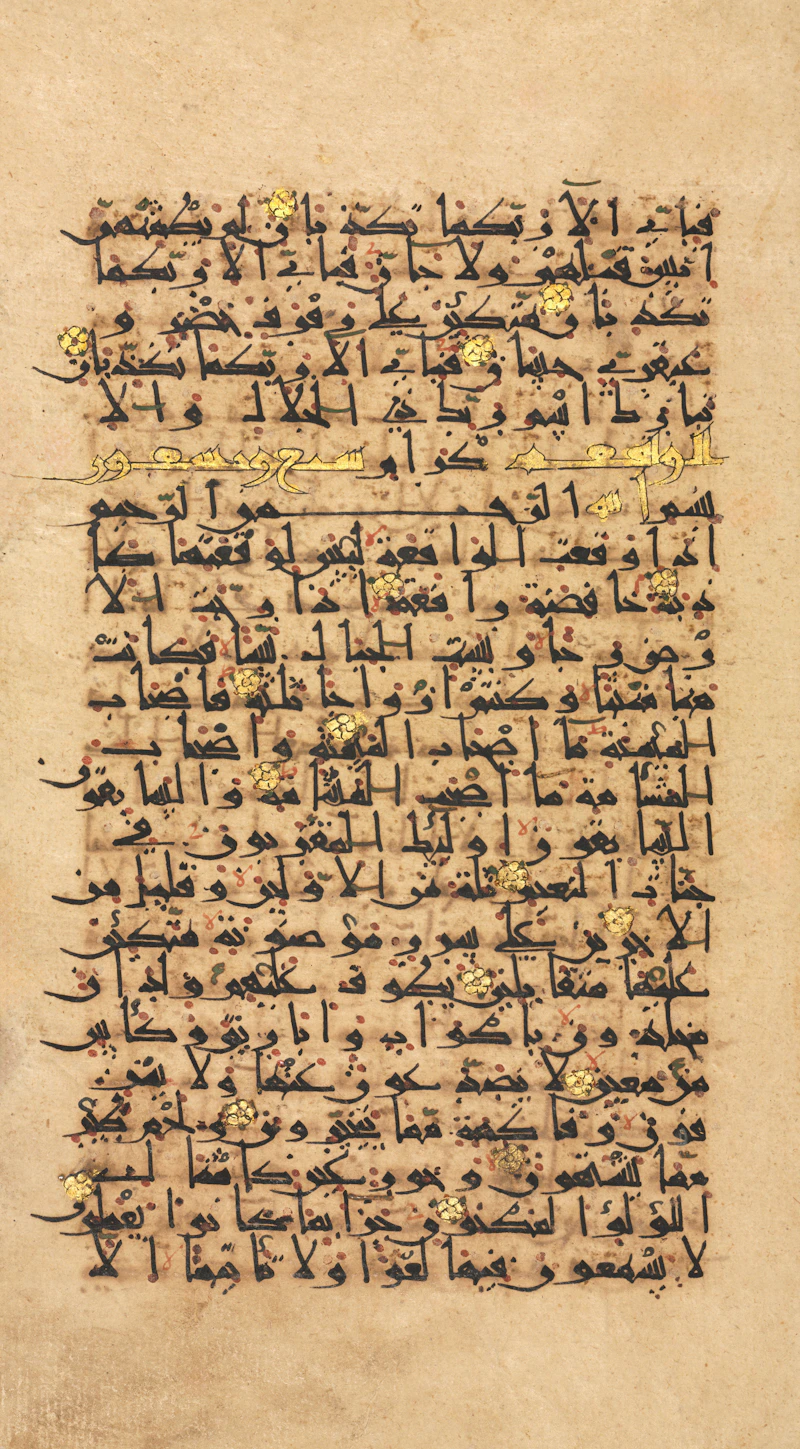 فباي الا ربكما تكذبان لم يطمثهن
انس قبلهم ولا جان فباي الا ربكما
تكذبان متكئين على رفرف خضر و
عبقري حسان فباي الا ربكما تكذبان
تبارك اسم ربك ذي الجلال والا
الواقعة كرام سبع وتسعون
بسم الله الرحمن الرحيم
اذا وقعت الواقعة ليس لوقعتها كا
ذبة خافضة رافعة اذا رجت الا
رض رجا وبست الجبال بسا فكانت
هبا منبثا وكنتم ازواجا ثلثة فاصحاب
الميمنة ما اصحاب الميمنة واصحاب
المشأمة ما اصحب المشأمة والسبقون
السبقون اولئك المقربون في
جنات النعيم ثلة من الاولين وقليل من
الاخرين على سرر موضونة متكئين
عليها متقابلين يطوف عليهم ولدان
مخلدون باكواب واباريق وكأس
من معين لا يصدعون عنها ولا ينز
فون وفاكهة مما يتخيرون ولحم طير
مما يشتهون وحور عين كامثال
اللؤلؤ المكنون جزا بما كانوا يعملون
لا يسمعون فيها لغوا ولا تأثيما الا